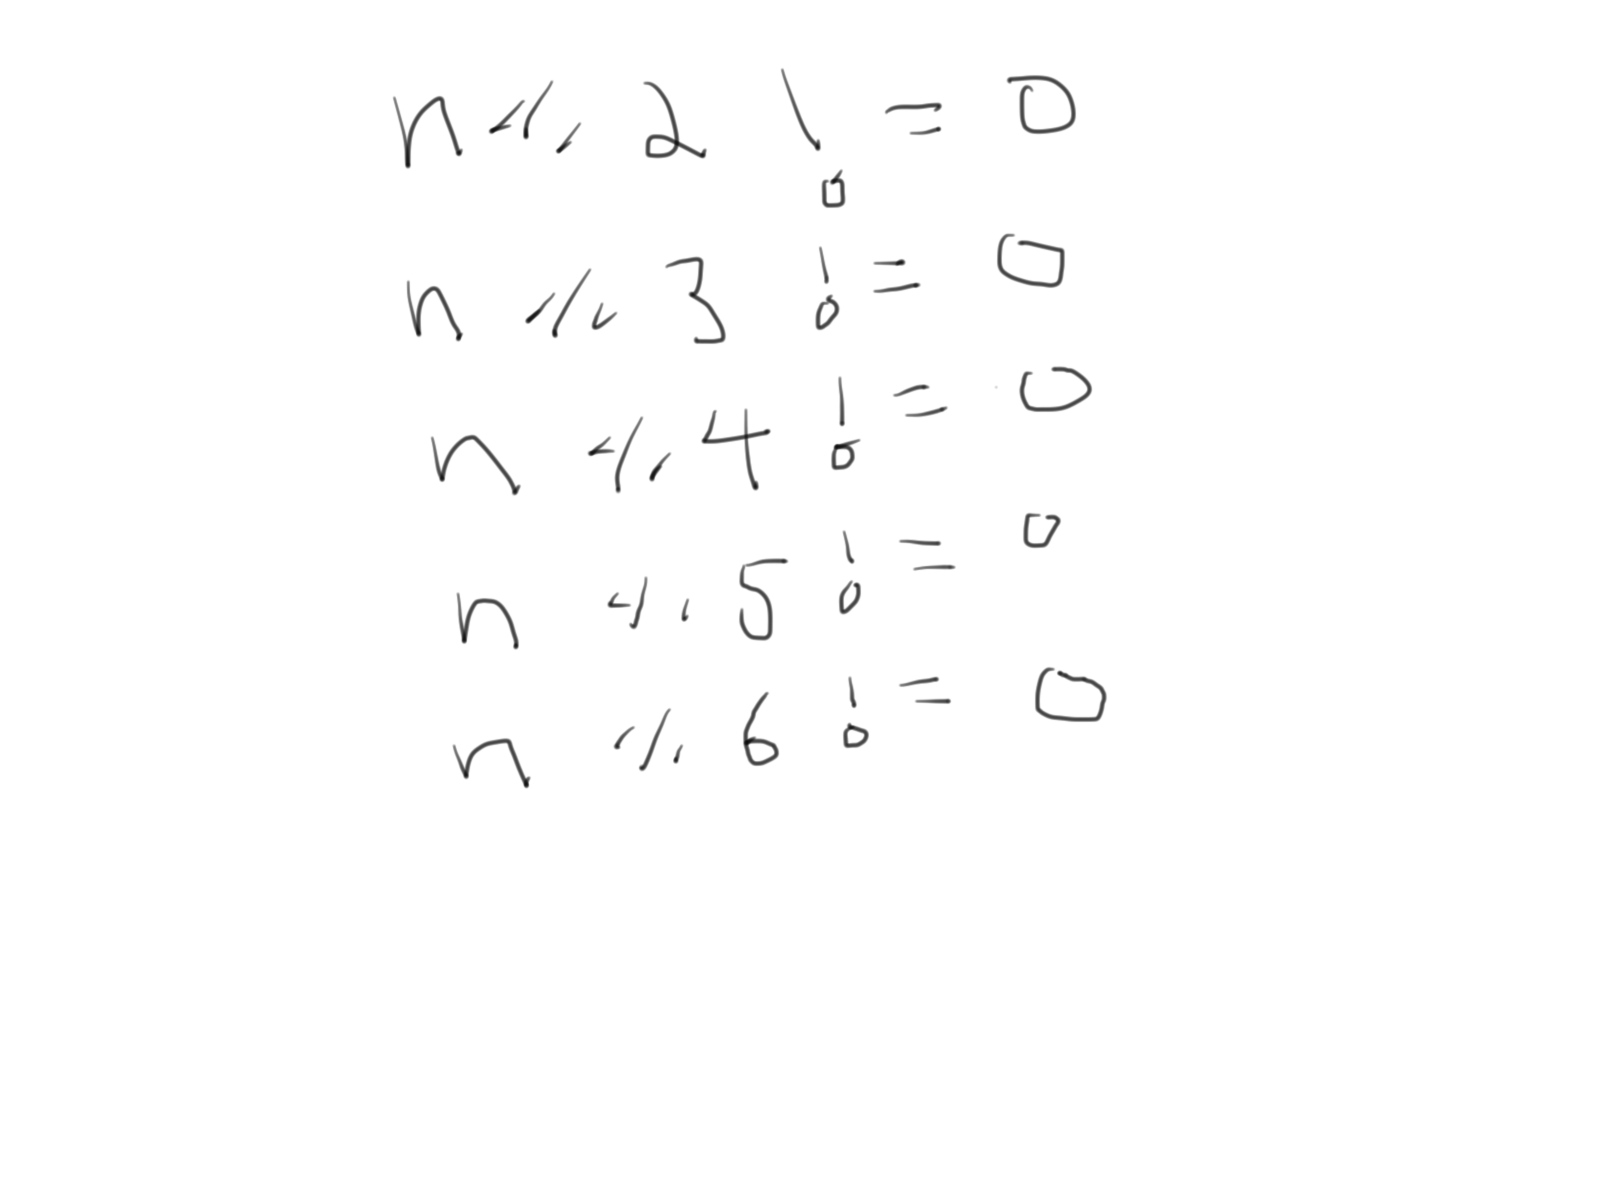 n % 2 != 0
n % 3 != 0
n % 4 != 0
n % 5 != 0
n % 6 != 0